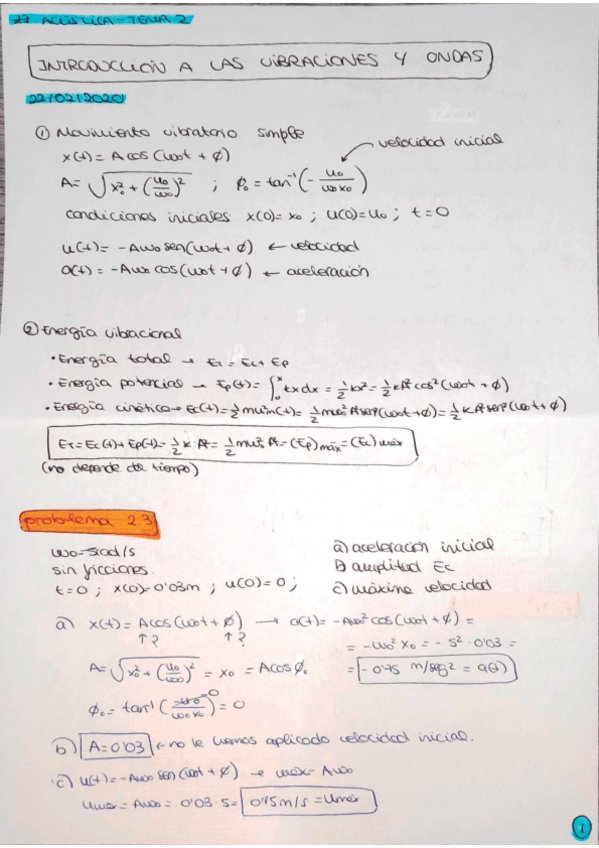 22 ACÚSTICA - TEMA 2
INTRODUCCIÓN A LAS VIBRACIONES Y ONDAS
22/02/2020
① Movimiento vibratorio simple
x(t) = A cos(ω0t + ϕ)
velocidad inicial
A = √(x0² + (u0/ω0)²) ; ϕ0 = tan⁻¹(- u0/ω0x0)
condiciones iniciales x(0) = x0 ; u(0) = u0 ; t = 0
u(t) = -Aω0 sen(ω0t + ϕ) ← velocidad
a(t) = -Aω0 cos(ω0t + ϕ) ← aceleración
② Energía vibracional
• Energía total → ET = Ec + Ep
• Energía potencial → Ep(t) = ∫₀ˣ fx dx = 1/2 kx² = 1/2 kA² cos²(ω0t + ϕ)
• Energía cinética → Ec(t) = 1/2 mu²(t) = 1/2 mω0² A² sen²(ω0t + ϕ) = 1/2 kA² sen²(ω0t + ϕ)
ET = Ec(t) + Ep(t) = 1/2 k A² = 1/2 mω0² A² = (Ep)máx = (Ec)máx
(no depende de tiempo)
problema 2.3
ω0 = 5rad/s a) aceleración inicial
sin fricciones. b) amplitud Ec
t = 0 ; x(0) = 0'03m ; u(0) = 0 ; c) máxima velocidad
a) x(t) = A cos(ω0t + ϕ) → a(t) = -Aω0² cos(ω0t + ϕ) =
↑? ↑? = -ω0² x0 = -5² · 0'03 =
A = √(x0² + (u0/ω0)²) = x0 = A cos ϕ0 = -0'75 m/seg² = a(t)
ϕ0 = tan⁻¹(-u0/ω0x0) = 0
b) A = 0'03 ← no le hemos aplicado velocidad inicial.
c) u(t) = -Aω0 sen(ω0t + ϕ) → umáx = Aω0
umáx = Aω0 = 0'03 · 5 = 0'15 m/s = umáx
1